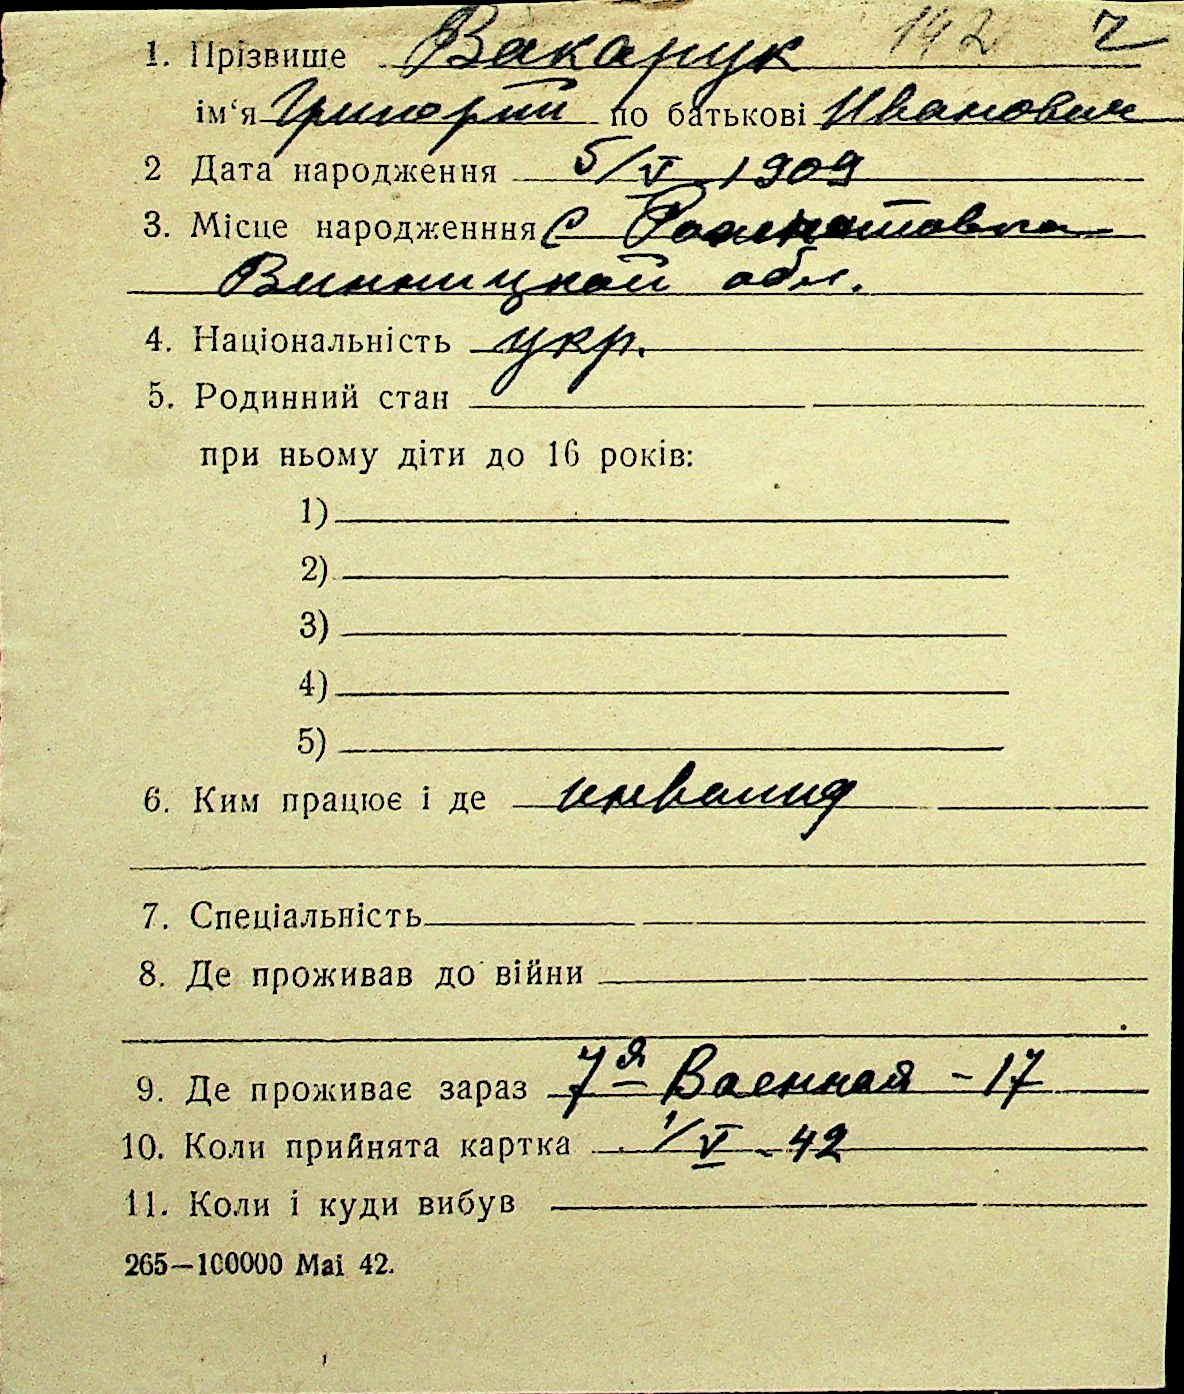 142 ч
1. Прізвище Вакарук
ім‘я Григорий по батькові Иванович
2 Дата народження 5/V 1909
3. Місце народженння С
Винницкой обл.
4. Національність укр.
5. Родинний стан
при ньому діти до 16 років:
1)
2)
3)
4)
5)
6. Ким працює і де инвалид
7. Спеціальність
8. Де проживав до війни
9. Де проживає зараз 7я Военная - 17
10. Коли прийнята картка 1/V - 42
11. Коли і куди вибув
265—100000 Mai 42.